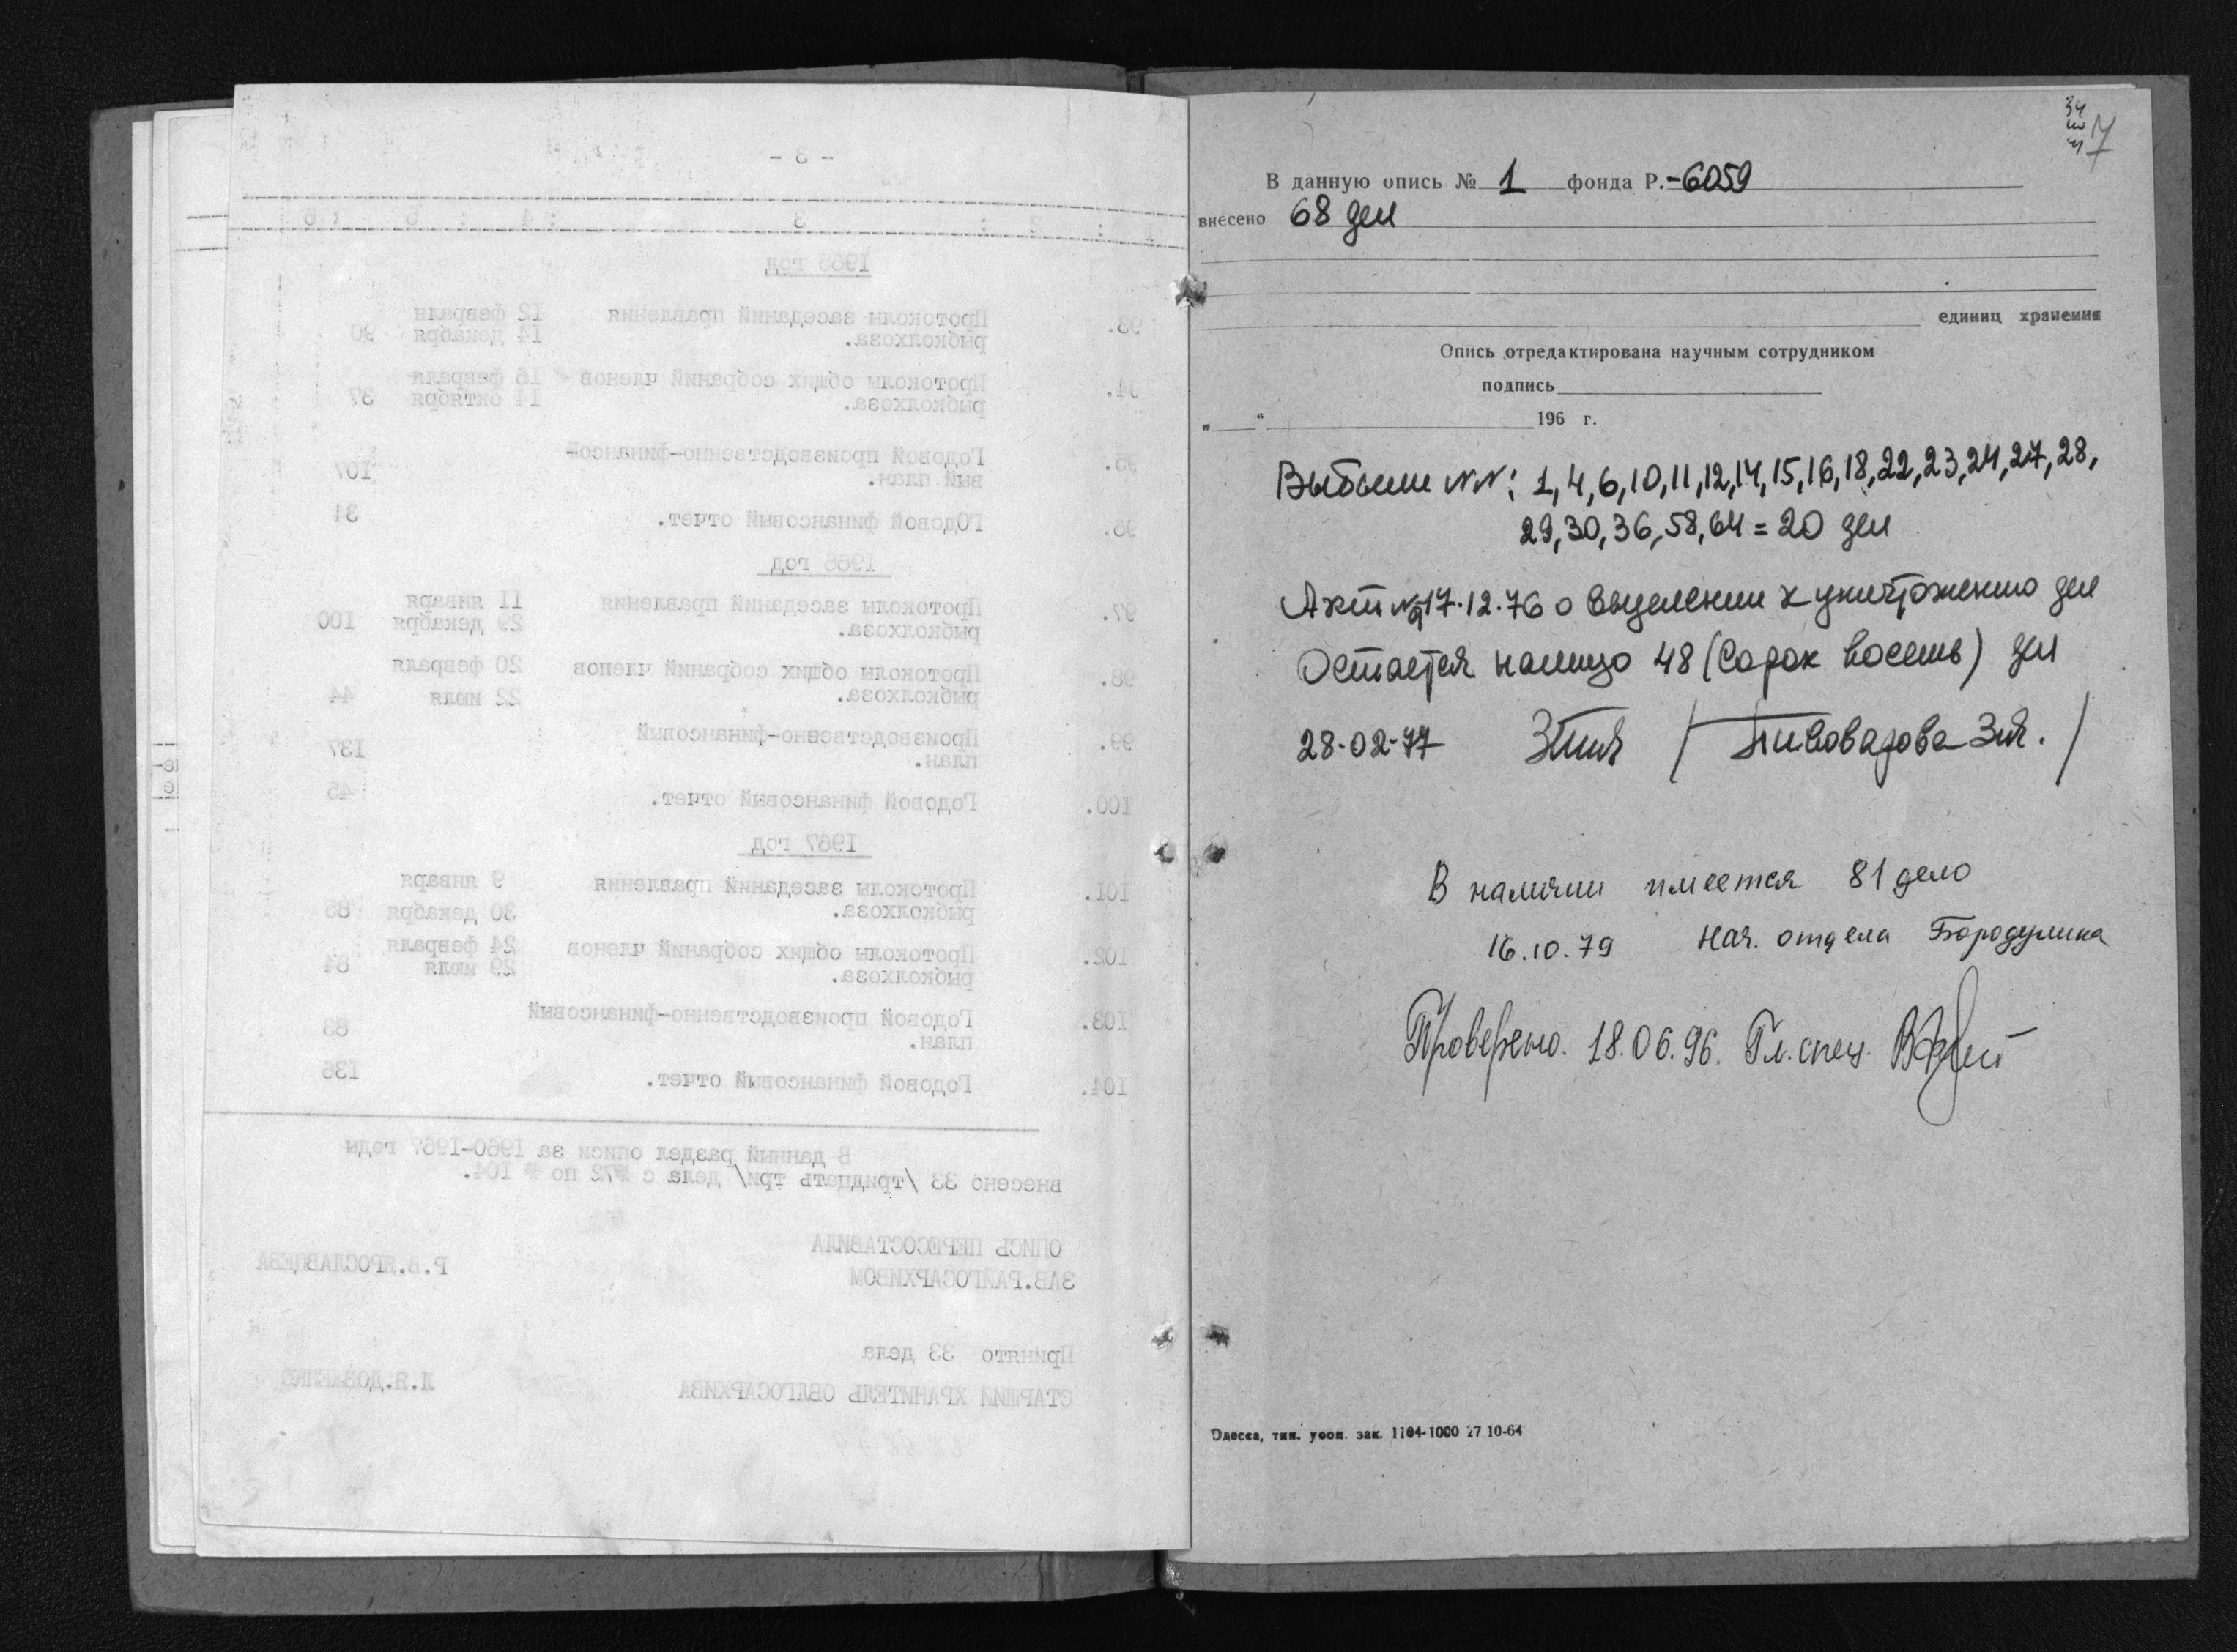 - 3 -
1 : 2 : 3 : 4 : 5 : 6
1965 год
93. Протоколы заседаний правления 12 февраля
рыбколхоза. 14 декабря 90
94. Протоколы общих собраний членов 16 февраля
рыбколхоза. 14 октября 37
95. Годовой производственно-финансо-
вый план. 107
96. ГОдовой финансовый отчет. 31
1966 год
97. Протоколы заседаний правления 11 января
рыбколхоза. 29 декабря 100
98. Протоколы общих собраний членов 20 февраля
рыбколхоза. 22 июля 44
99. Производственно-финансовый
план. 137
100. Годовой финансовый отчет. 45
1967 год
101. Протоколы заседаний правления 9 января
рыбколхоза. 30 декабря 85
102. Протоколы общих собраний членов 24 февраля
рыбколхоза. 29 июля 84
103. Годовой производственно-финансовый
план. 83
104. Годовой финансовый отчет. 136
В данный раздел описи за 1960-1967 годы
внесено 33 /тридцать три/ дела с №72 по № 104.
ОПИСЬ ПЕРЕСОСТАВИЛА
ЗАВ.РАЙГОСАРХИВОМ Р.В.ЯРОСЛАВЦЕВА
Принято 33 дела
СТАРШИЙ ХРАНИТЕЛЬ ОБЛГОСАРХИВА Л.Я.ДОВЖЕНКО
34
7
В данную опись № 1 фонда Р.-6059
внесено 68 дел
единиц хранения
Опись отредактирована научным сотрудником
подпись
„ “ 196 г.
Выбыли NN: 1,4,6,10,11,12,14,15,16,18,22,23,24,27,28,
29,30,36,58,64 = 20 дел
Акт № 17.12.76 о выделении к уничтожению дел
Остается налицо 48 (сорок восемь) дел
28.02.77 / Пивоварова З.Я. /
В наличии имеется 81 дело
16.10.79 Нач. отдела Бородулина
Проверено. 18.06.96. Гл. спец.
Одесса, тип. уооп. зак. 1104-1000 27 10-64